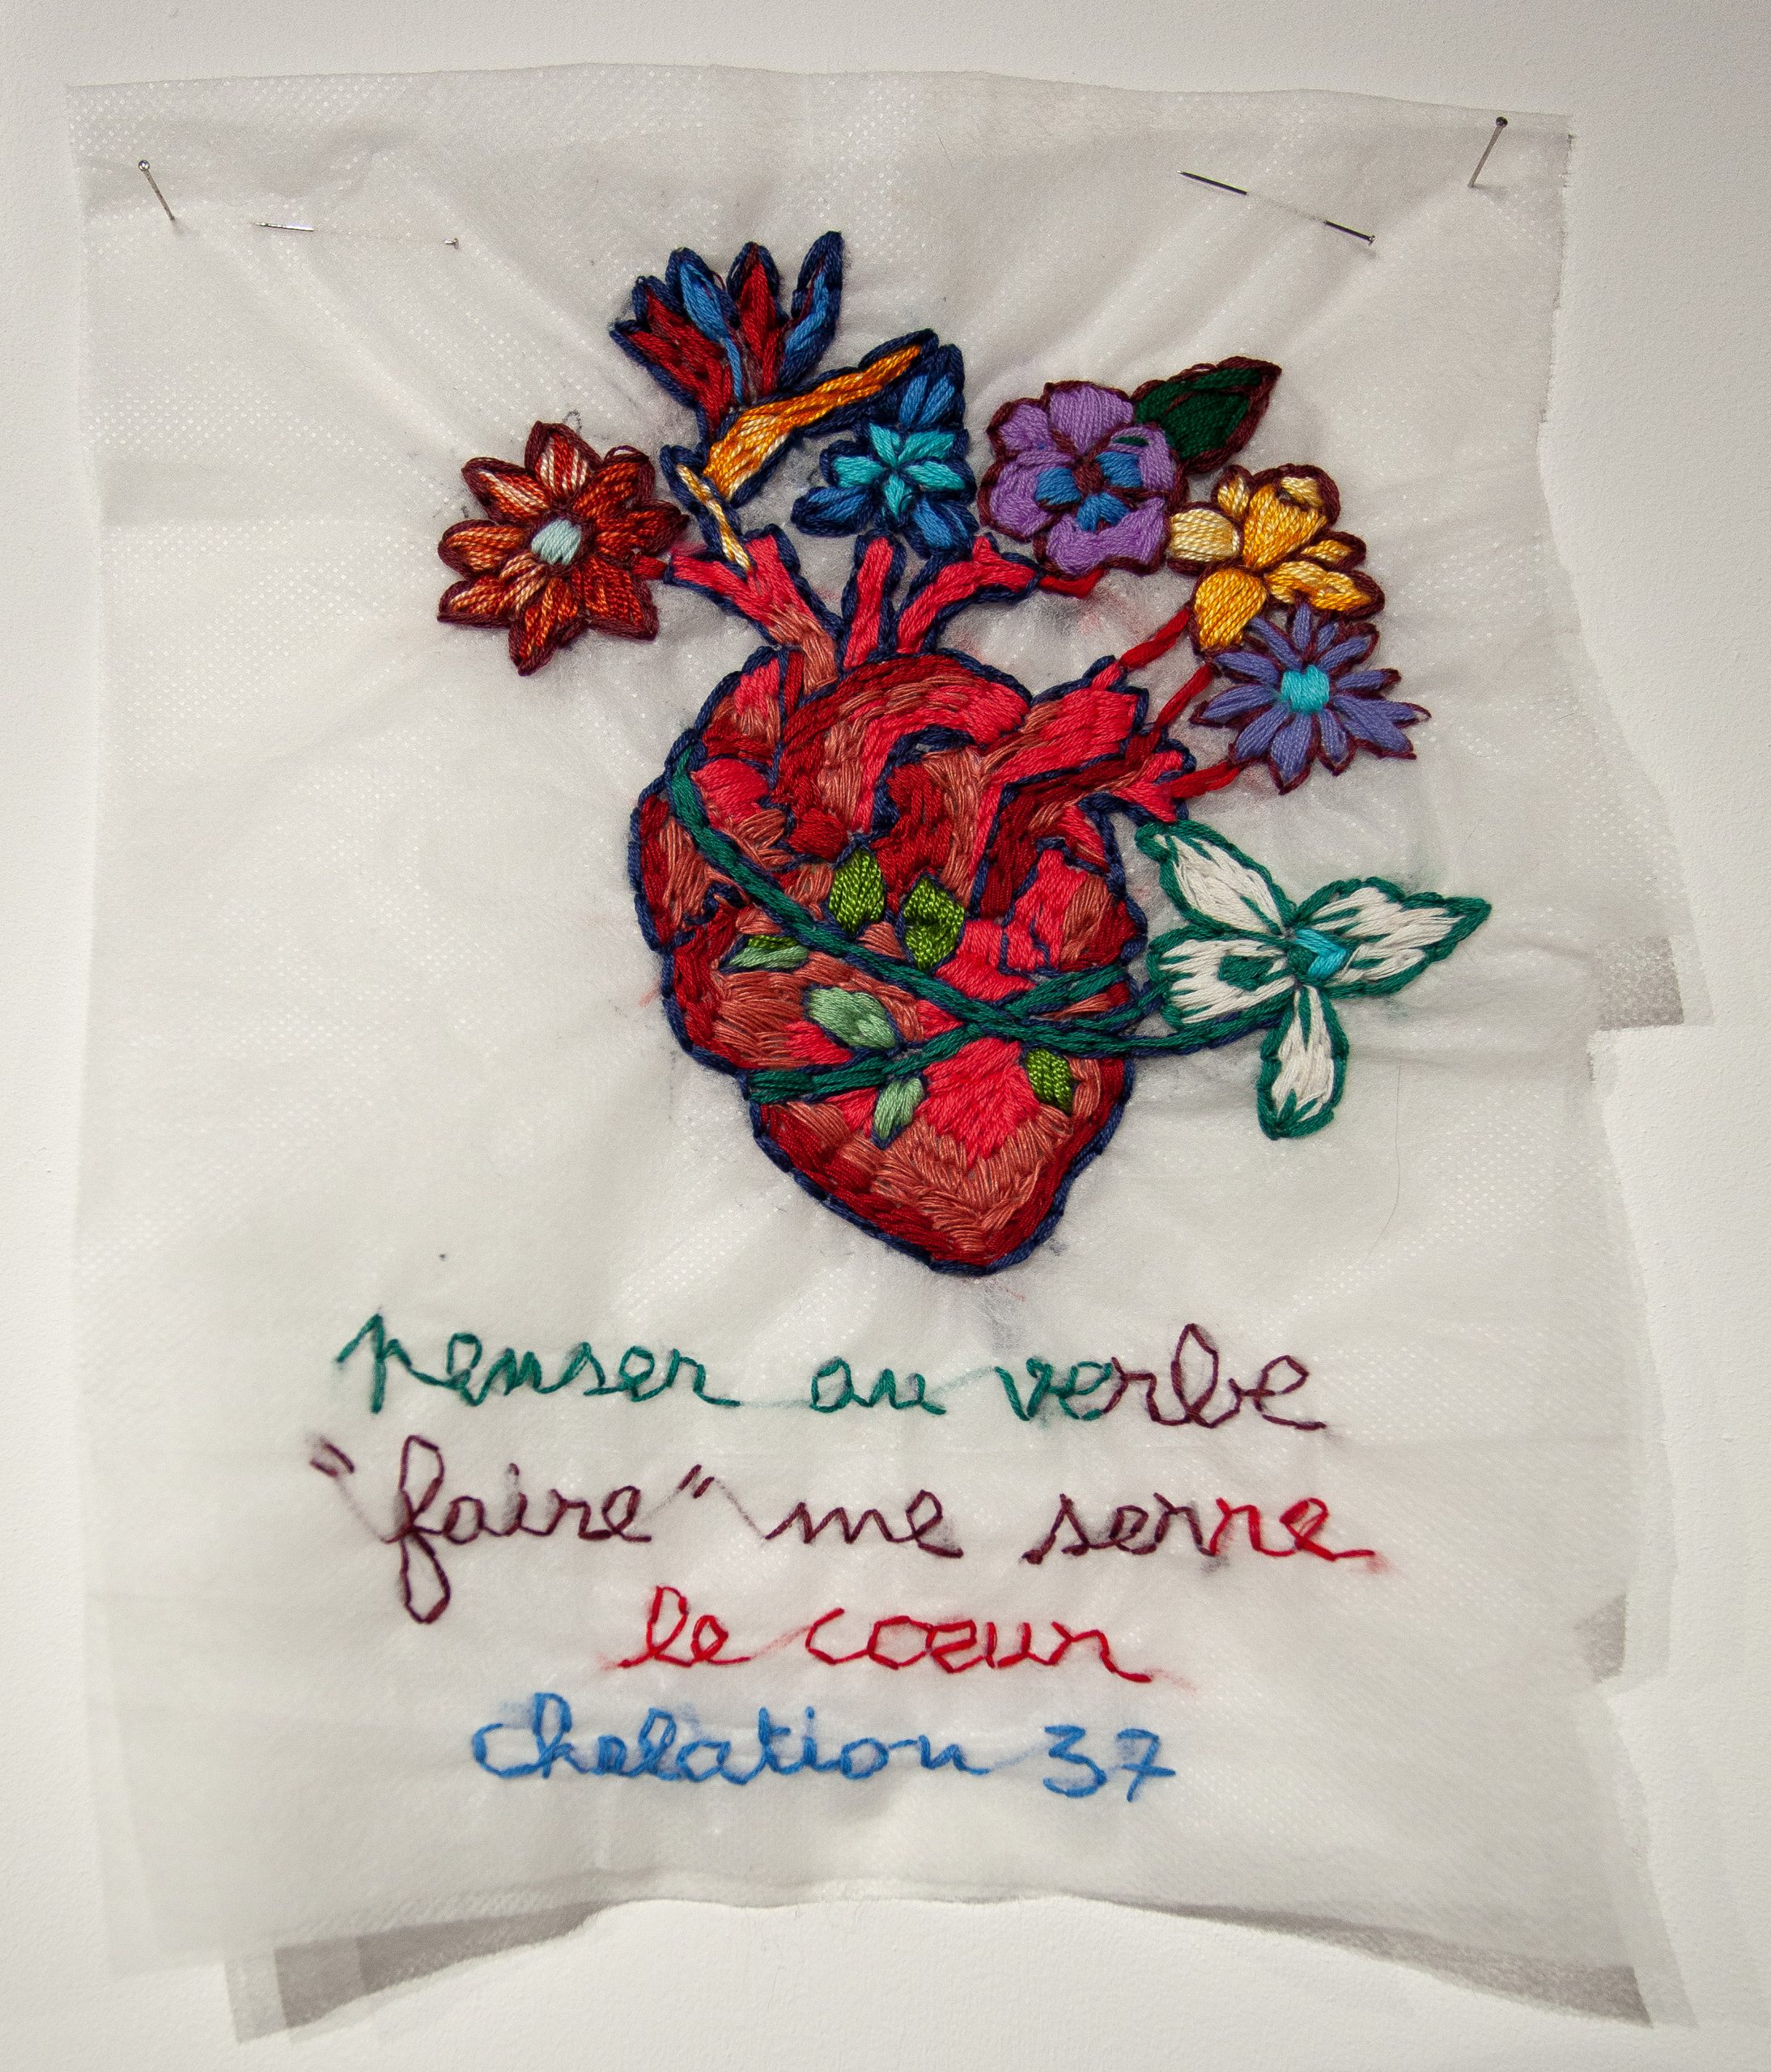 penser au verbe
"faire" me serre
le coeur
chelation 37